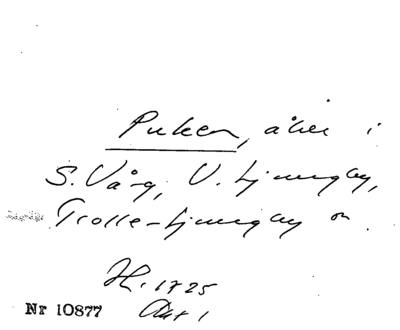 Puken, åker i
S. Vång, V. Ljungby,
Trolle-Ljungby sn.
H. 1725
Akt 1
Nr 10877